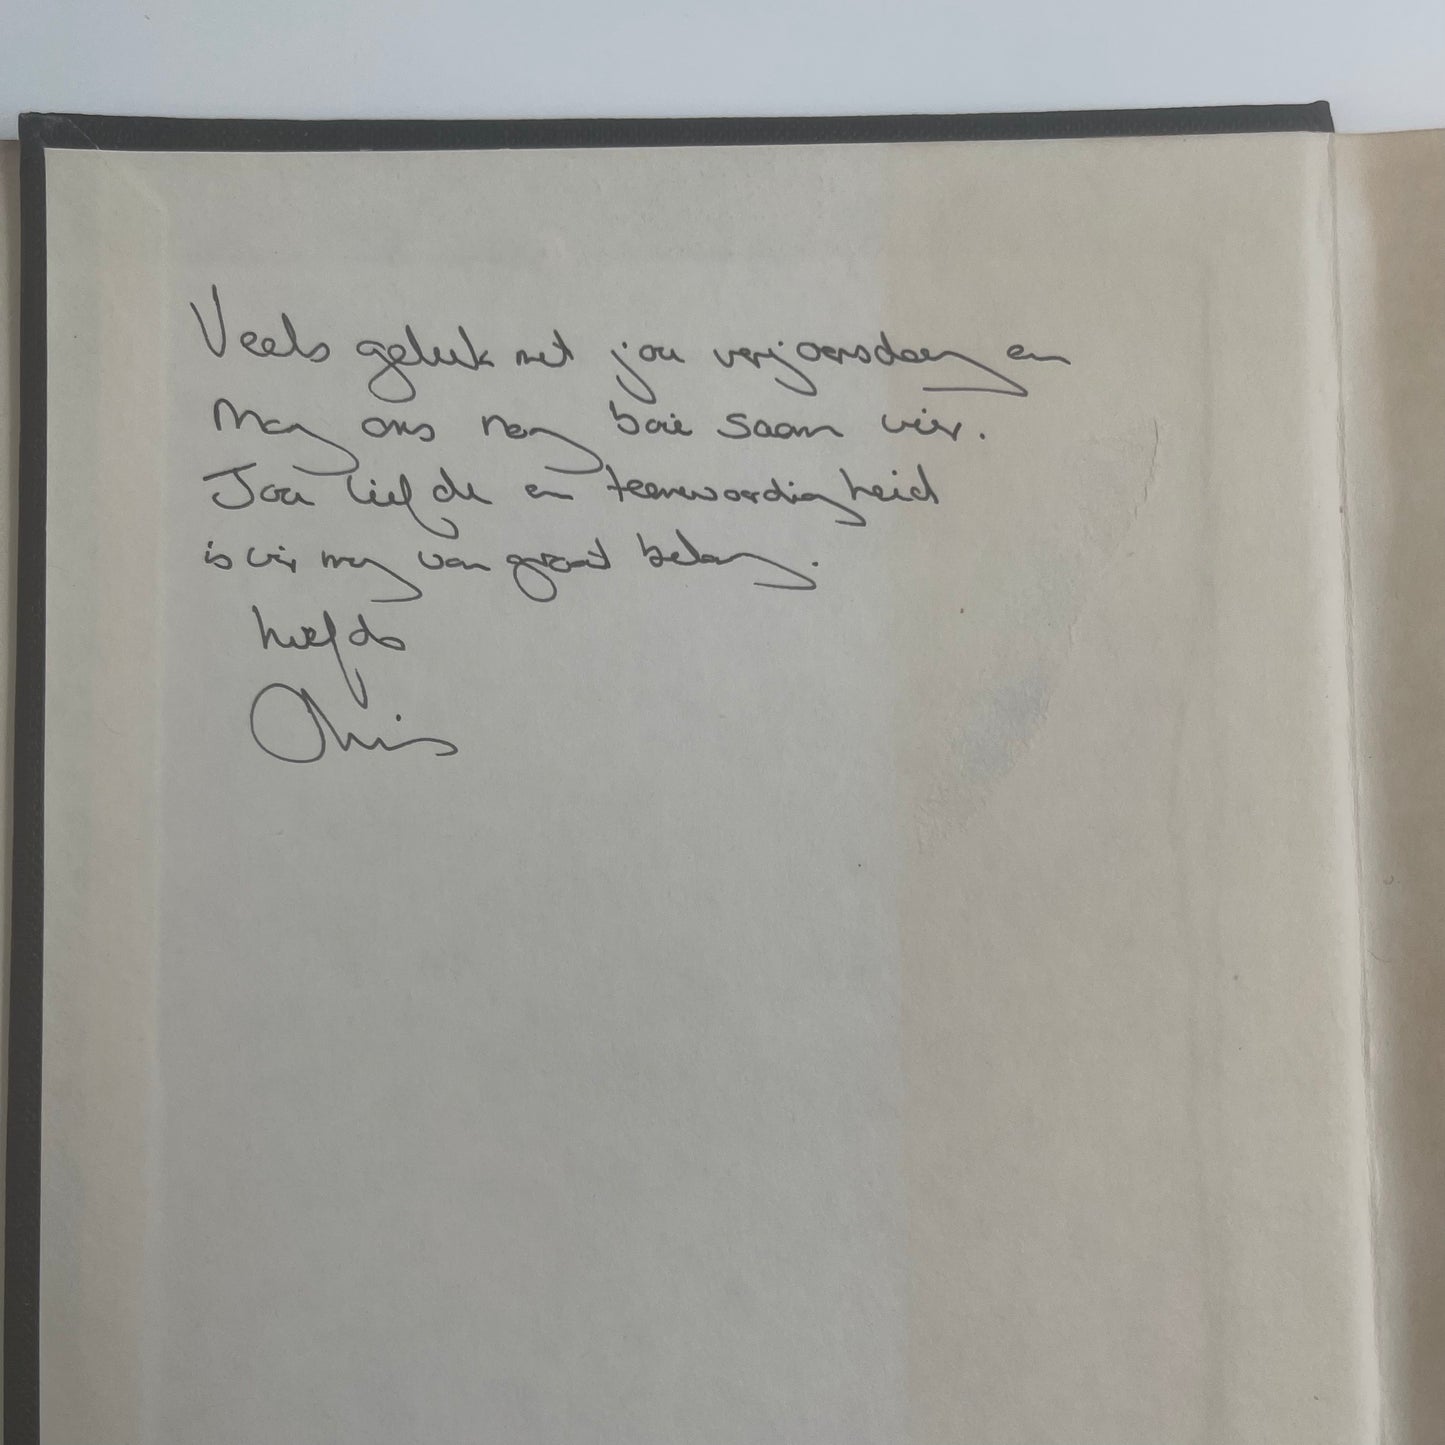 Veels geluk met jou verjaarsdag en
Mag ons nog baie saam vier.
Jou liefde en teenwoordigheid
is vir my van groot belang.
Liefde
Chris